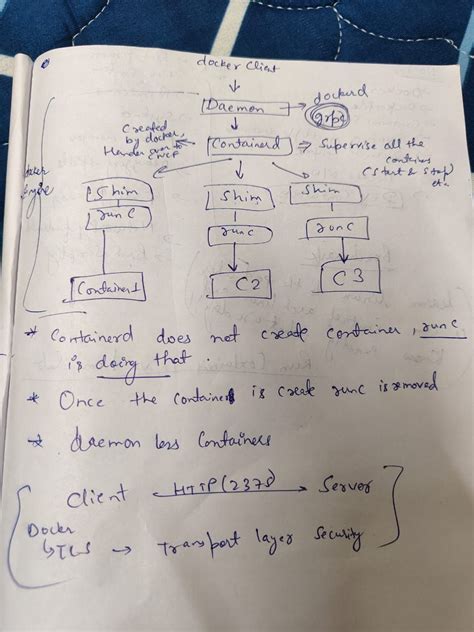 docker client
Daemon → dockerd
grpc
Created by docker,
Handed over to
CNCF
Containerd ⇒ Supervise all the
container
(start & stop)
etc
Docker
Engine
Shim Shim Shim
runC runC runC
Container1 C2 C3
* Containerd does not create container, runC
is doing that.
* Once the container is create runc is removed
* daemon less Containers
Client HTTP(2375) → Server
Docker
↳ TLS → Transport layer Security